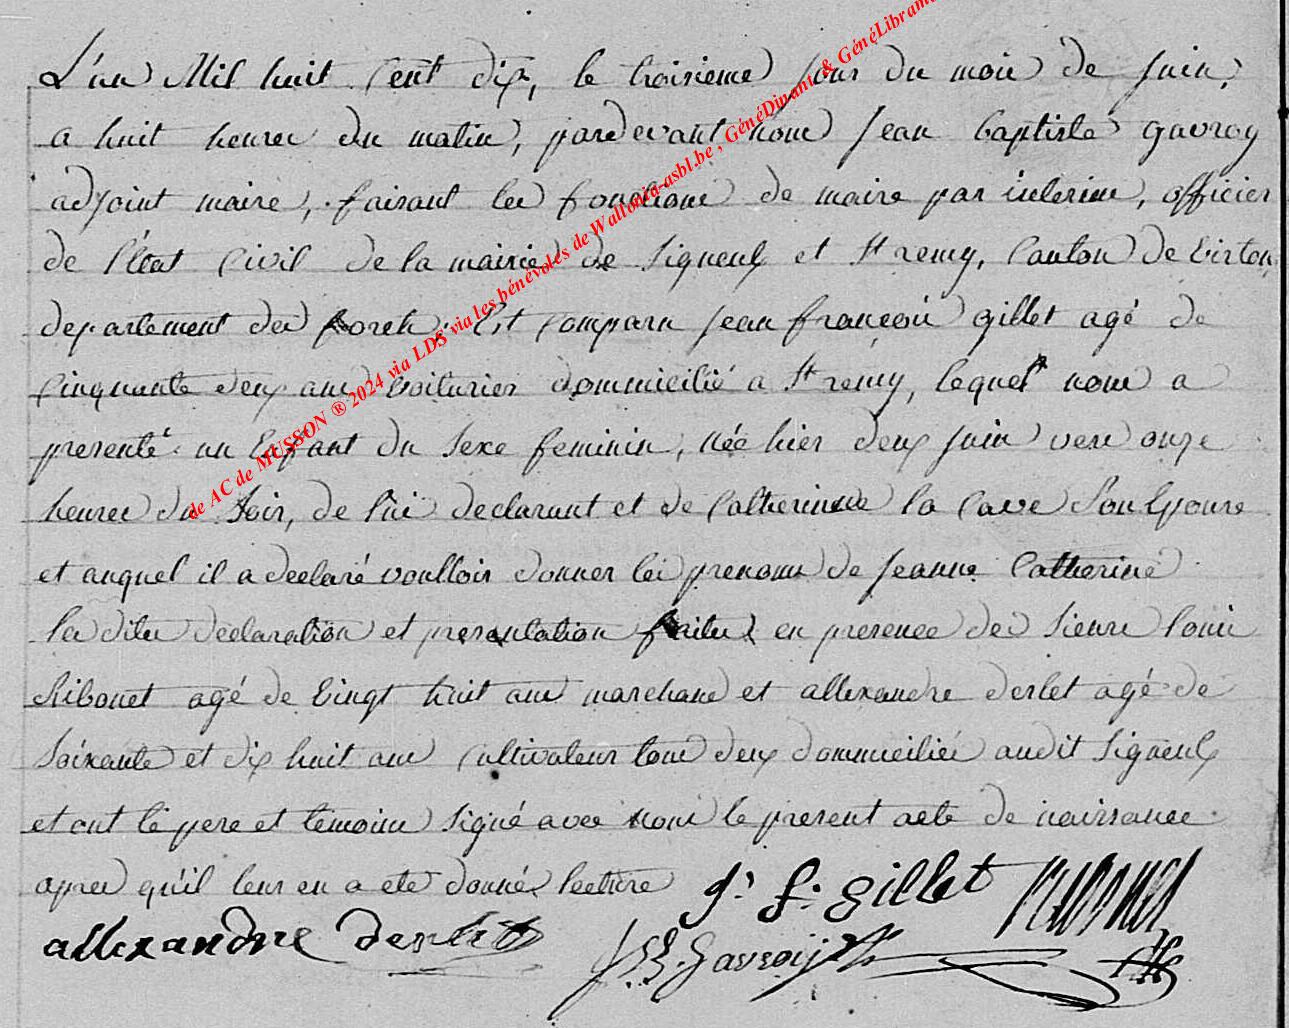 L'an Mil huit Cent dix, le troisieme jour du mois de Juin,
a huit heures du matin, pardevant nous Jean baptiste gavroy
adjoint maire, faisant les fonctions de maire par interim, officier
de l'état Civil de la mairie de Signeulx et St remy, Canton de Virton,
departement des forets, Est Comparu Jean françois gillet agé de
Cinquante deux ans voiturier dommicilié a St remy, lequel nous a
presenté un Enfant du Sexe feminin, née hier deux Juin vers onze
heures du Soir, de lui declarant et de Catherinne la Cave Son Epouse
et auquel il a declaré voulloir donner les prenoms de Jeanne Catherine
les dites declaration et presentation faites en presence des Sieurs Louis
Ribonet agé de Vingt huit ans marchand et allexandre derlet agé de
Soixante et dix huit ans Cultivateur tous deux dommiciliés audit Signeulx
et ont le pere et temoins Signé avec nous le present acte de naissance
apres qu'il leur en a eté donné lecture J. f. gillet
allexandre derlet JB. Gavroij
de AC de MUSSON ® 2024 via LDS via les bénévoles de Wallonia-asbl.be , GénéDinant & GénéLibramont